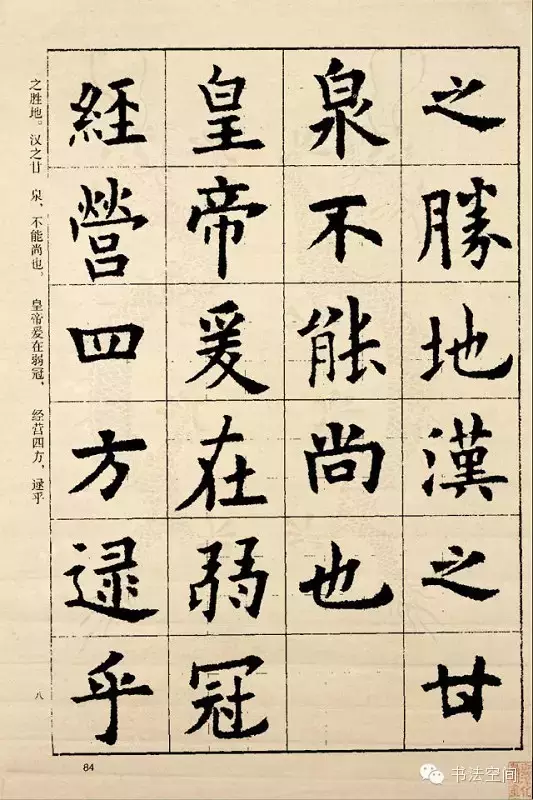 之勝地漢之甘
泉不能尚也
皇帝爰在弱冠
經營四方逮乎
之胜地。汉之甘 泉,不能尚也。 皇帝爰在弱冠, 经营四方,逮乎
八
84
书法空间